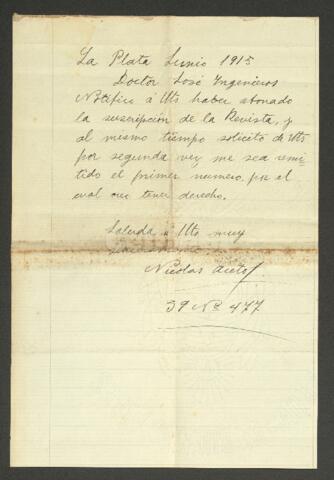 La Plata Junio 1915
Doctor José Ingenieros
Notifico á Uts haber abonado
la suscripción de la Revista, y
al mismo tiempo solicito de Uts
por segunda vez me sea remi-
tido el primer numero, por el
cual creo tener derecho.
Saluda á Uts muy
Nicolas
39 No 477